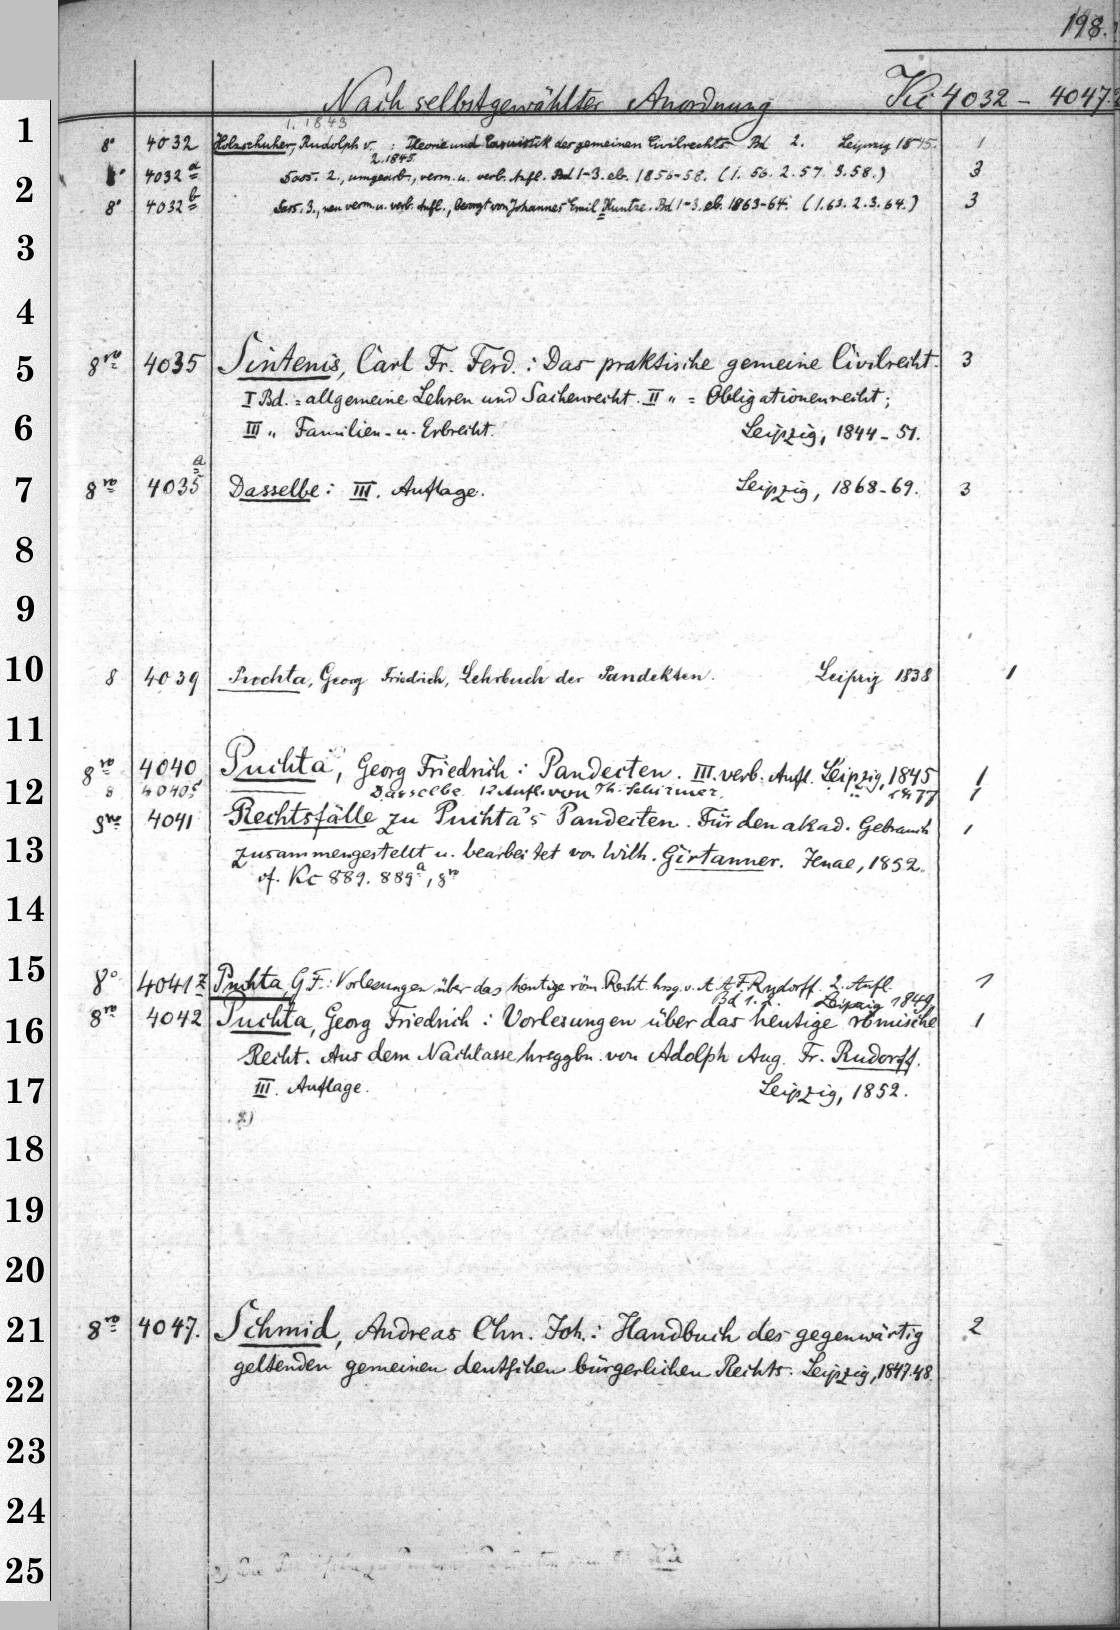 198.
Nach selbstgewählter Anordnung Kc 4032 - 4047.
1. 1843
8° 4032 Holzschuher, Rudolph v. : Theorie und Casuistik des gemeinen Civilrechts Bd 2. Leipzig 1845. 1
2. 1845
8° 4032 a Dass. 2., umgearb., verm. u. verb. Aufl. Bd 1-3. eb. 1856-58. (1. 56. 2. 57. 3. 58.) 3
8° 4032 b Dass. 3., neu verm. u. verb. Aufl., besorgt von Johannes Emil Kuntze. Bd 1-3. eb. 1863-64. (1. 63. 2. 3. 64.) 3
8vo 4035 Sintenis, Carl Fr. Ferd. : Das praktische gemeine Civilrecht. 3
I Bd. = allgemeine Lehren und Sachenrecht. II „ = Obligationenrecht;
III „ Familien- u. Erbrecht. Leipzig, 1844-51.
8vo 4035 a Dasselbe : III. Auflage. Leipzig, 1868-69. 3
8 4039 Puchta, Georg Friedrich, Lehrbuch der Pandekten. Leipzig 1838 1
8vo 4040 Puchta, Georg Friedrich : Pandecten. III. verb. Aufl. Leipzig, 1845 1
8 4040 Dasselbe. 12 Aufl. von Th. Schirmer. 1877 1
8vo 4041 Rechtsfälle zu Puchta's Pandecten. Für den akad. Gebrauch 1
zusammengestellt u. bearbeitet von Wilh. Girtanner. Jenae, 1852.
cf. Kc 889. 889a, 8vo
8° 4041 z Puchta, G. F. : Vorlesungen über das heutige röm. Recht. hrsg. v. A. A. F. Rudorff. 2. Aufl. 1
Bd 1. 2. Leipzig 1849.
8vo 4042 Puchta, Georg Friedrich : Vorlesungen über das heutige römische 1
Recht. Aus dem Nachlasse hreggbn. von Adolph Aug. Fr. Rudorff.
III. Auflage. Leipzig, 1852.
8vo 4047. Schmid, Andreas Chn. Joh. : Handbuch des gegenwärtig 2
geltenden gemeinen deutschen bürgerlichen Rechts. Leipzig, 1847.48.
1
2
3
4
5
6
7
8
9
10
11
12
13
14
15
16
17
18
19
20
21
22
23
24
25